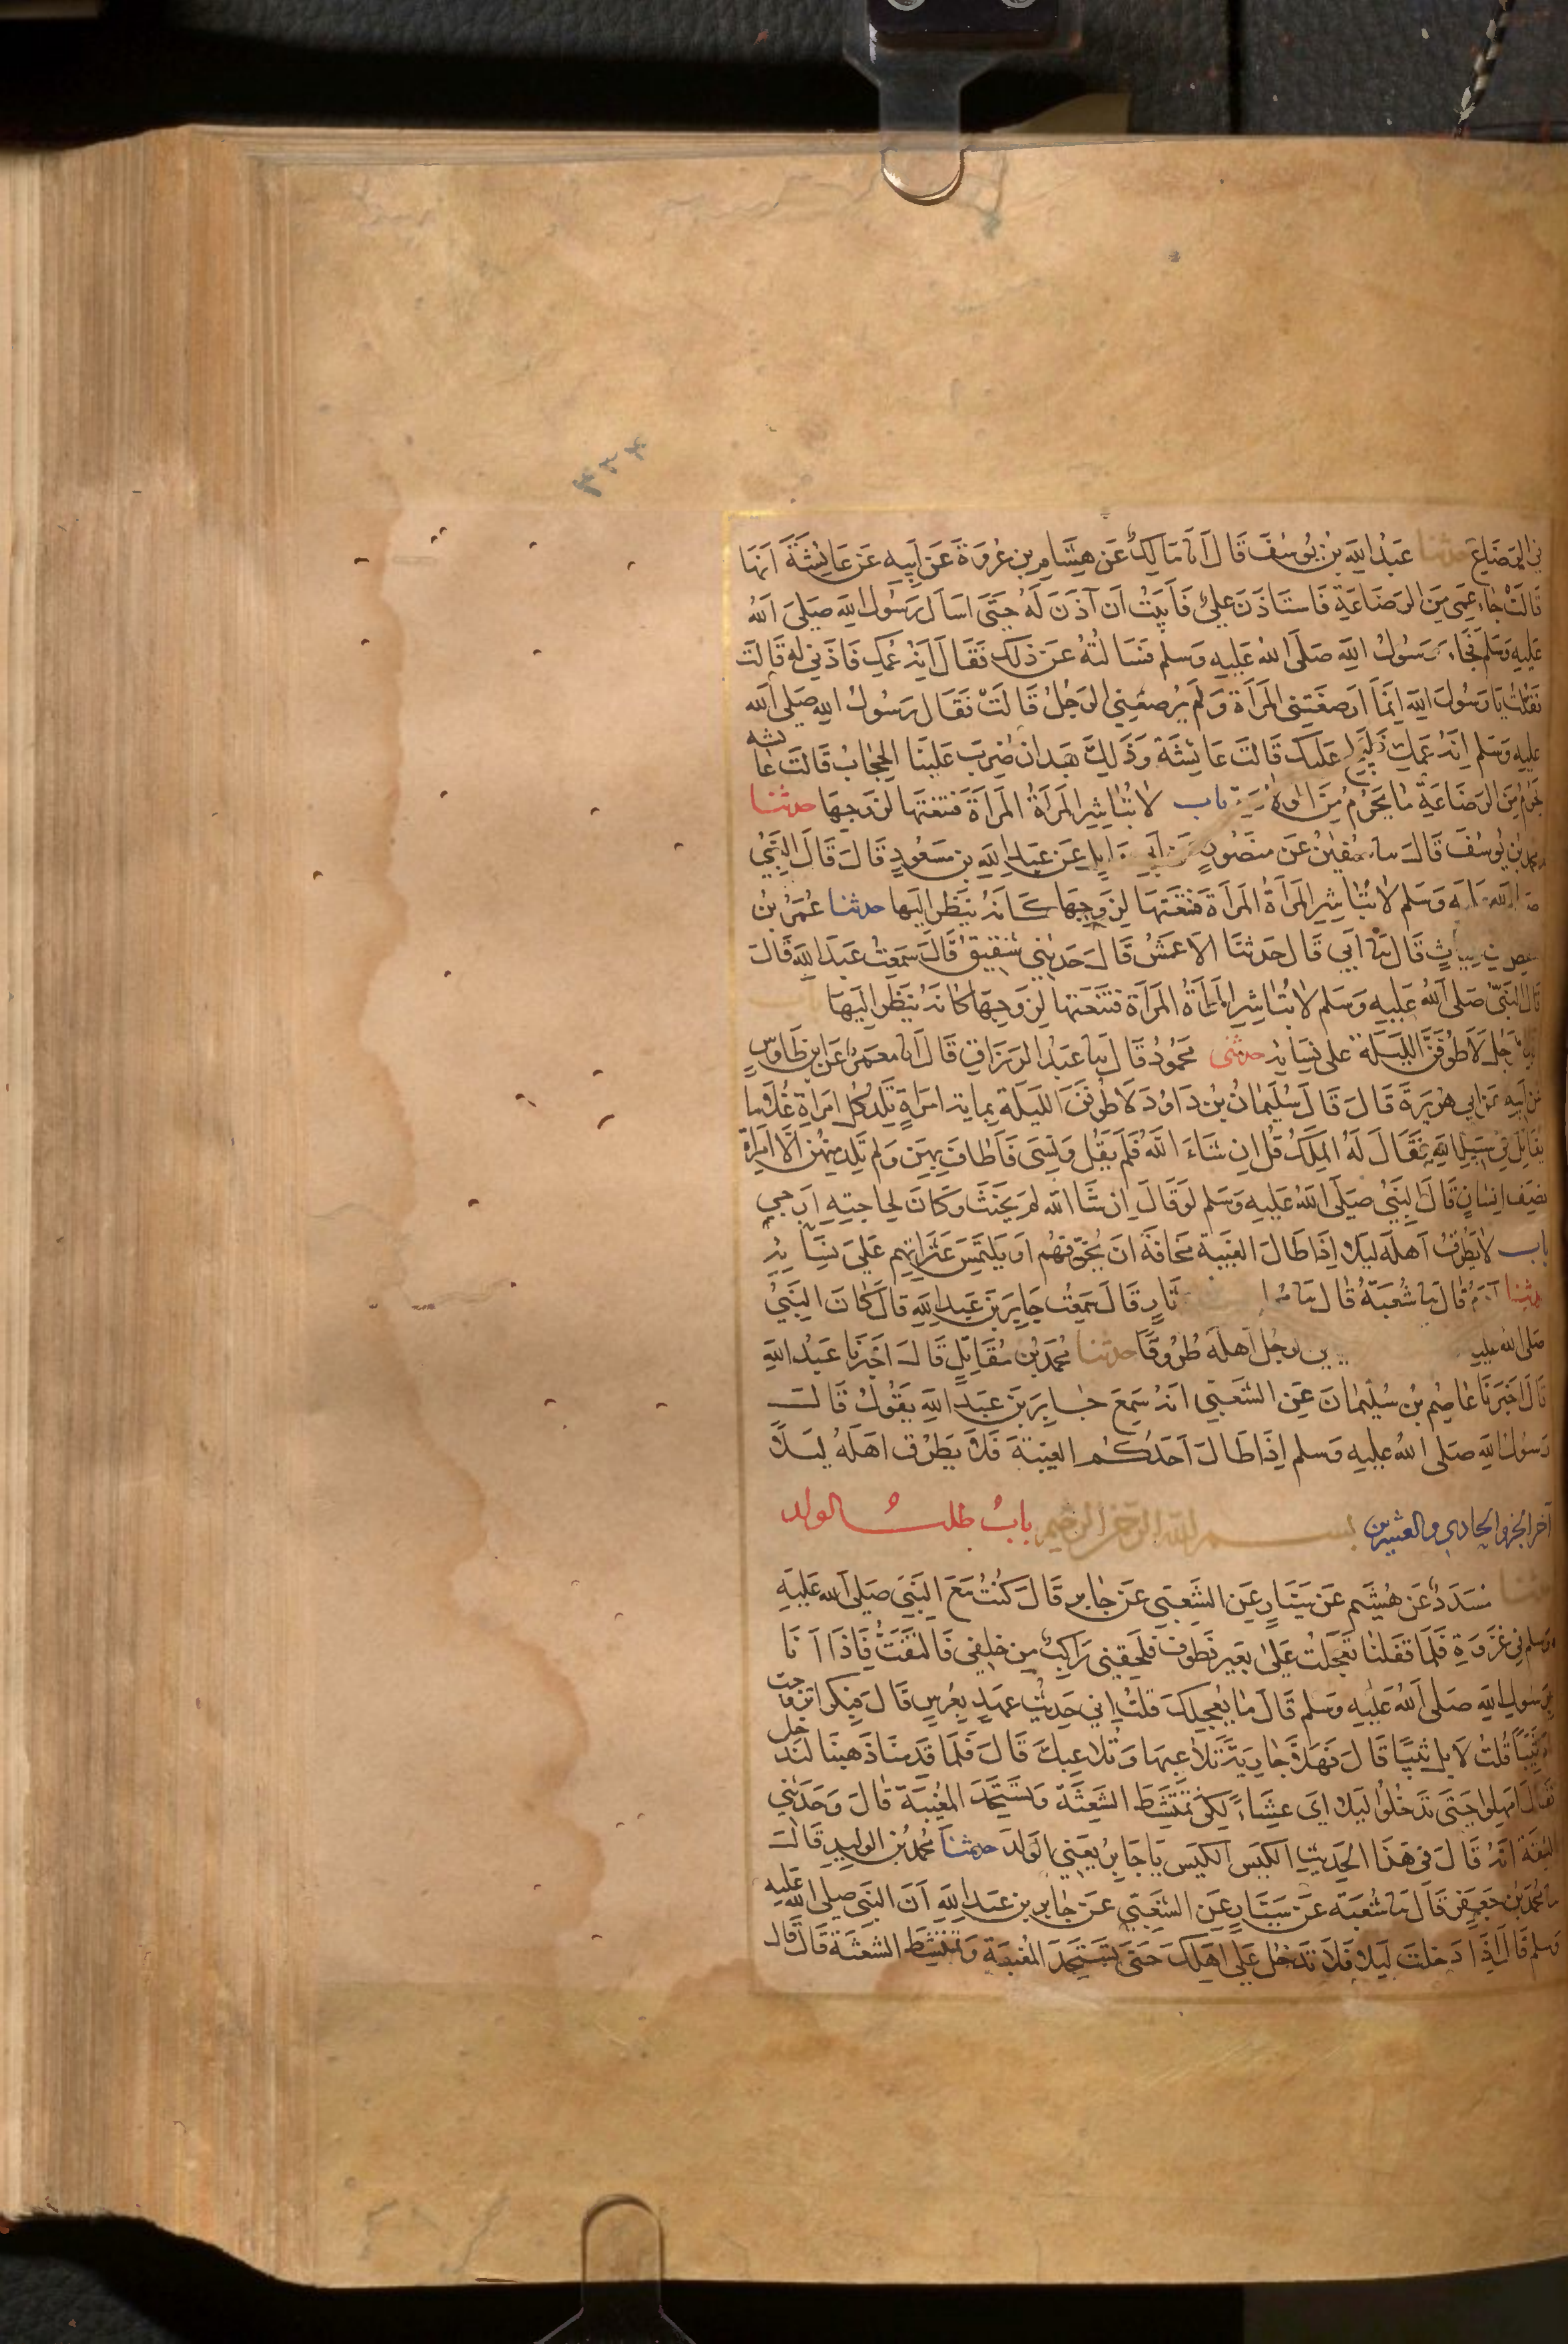 ٣٣٣
في الرضاع حدثنا عبد الله بن يوسف قال انا مالك عن هشام بن عروة عن ابيه عن عايشة انها
قالت جاء عمي من الرضاعة فاستاذن علي فابيت ان آذن له حتى اسال رسول الله صلى الله
عليه وسلم فجاء رسول الله صلى الله عليه وسلم فسالته عن ذلك فقال انه عمك فاذني له قالت
فقلت يا رسول الله انما ارضعتني المراة ولم يرضعني الرجل قالت فقال رسول الله صلى الله
عليه وسلم انه عمك فليلج عليك قالت عائشة وذلك بعد ان ضرب علينا الحجاب قالت عائشه
يحرم من الرضاعة ما يحرم من الولادة باب لا تباشر المراة المراة فتنعتها لزوجها حدثنا
محمد بن يوسف قال سا سفين عن منصور عن ابي وايل عن عبد الله بن مسعود قال قال النبي
صلى الله عليه وسلم لا تباشر المراة المراة فتنعتها لزوجها كانه ينظر اليها حدثنا عمر بن
حفص بن غياث قال نا ابي قال حدثنا الاعمش قال حدثني شقيق قال سمعت عبد الله قال
قال النبي صلى الله عليه وسلم لا تباشر المراة المراة فتنعتها لزوجها كانه ينظر اليها
الرجل لاطوفن الليلة على نسايه حدثني محمود قال نا عبد الرزاق قال انا معمر عن ابن طاوس
عن ابيه عن ابي هريرة قال قال سليمان بن داود لاطوفن الليلة بماية امراة تلد كل امراة غلاما
يقاتل في سبيل الله فقال له الملك قل ان شاء الله فلم يقل ونسي فاطاف بهن ولم تلد منهن الا امراة
نصف انسان قال النبي صلى الله عليه وسلم لو قال ان شا الله لم يحنث وكان لحاجته ارجي
باب لا يطرق اهله ليلا اذا طال الغيبة مخافة ان يخونهم او يلتمس عثراتهم على نسايه
حدثنا آدم قال نا شعبة قال نا ثار قال سمعت جابر بن عبد الله قال كان النبي
صلى الله عليه الرجل اهله طروقا حدثنا محمد بن مقاتل قال اخبرنا عبد الله
قال اخبرنا عاصم بن سليمان عن الشعبي انه سمع جابر بن عبد الله يقول قال
رسول الله صلى الله عليه وسلم اذا طال احدكم الغيبة فلا يطرق اهله ليلا
آخر الجزو الحادي والعشرين بسم الله الرحمن الرحيم باب طلب الولد
حدثنا مسدد عن هشيم عن سيار عن الشعبي عن جابر قال كنت مع النبي صلى الله عليه
وسلم في غزوة فلما قفلنا تعجلت على بعير قطوف فلحقني راكب من خلفي فالتفت فاذا انا
برسول الله صلى الله عليه وسلم قال ما يعجلك قلت اني حديث عهد بعرس قال فبكرا تزوجت
ام ثيبا قلت لا بل ثيبا قال فهلا جارية تلاعبها وتلاعبك قال فلما قدمنا ذهبنا لندخل
فقال امهلوا حتى تدخلوا ليلا اي عشاء لكي تمتشط الشعثة وتستحد المغيبة قال وحدثني
الثقة انه قال في هذا الحديث الكيس الكيس يا جابر يعني الولد حدثنا محمد بن الوليد قال
نا محمد بن جعفر قال نا شعبة عن سيار عن الشعبي عن جابر بن عبد الله ان النبي صلى الله عليه
وسلم قال اذا دخلت ليلا فلا تدخل على اهلك حتى تستحد المغيبة وتمتشط الشعثة قال قال